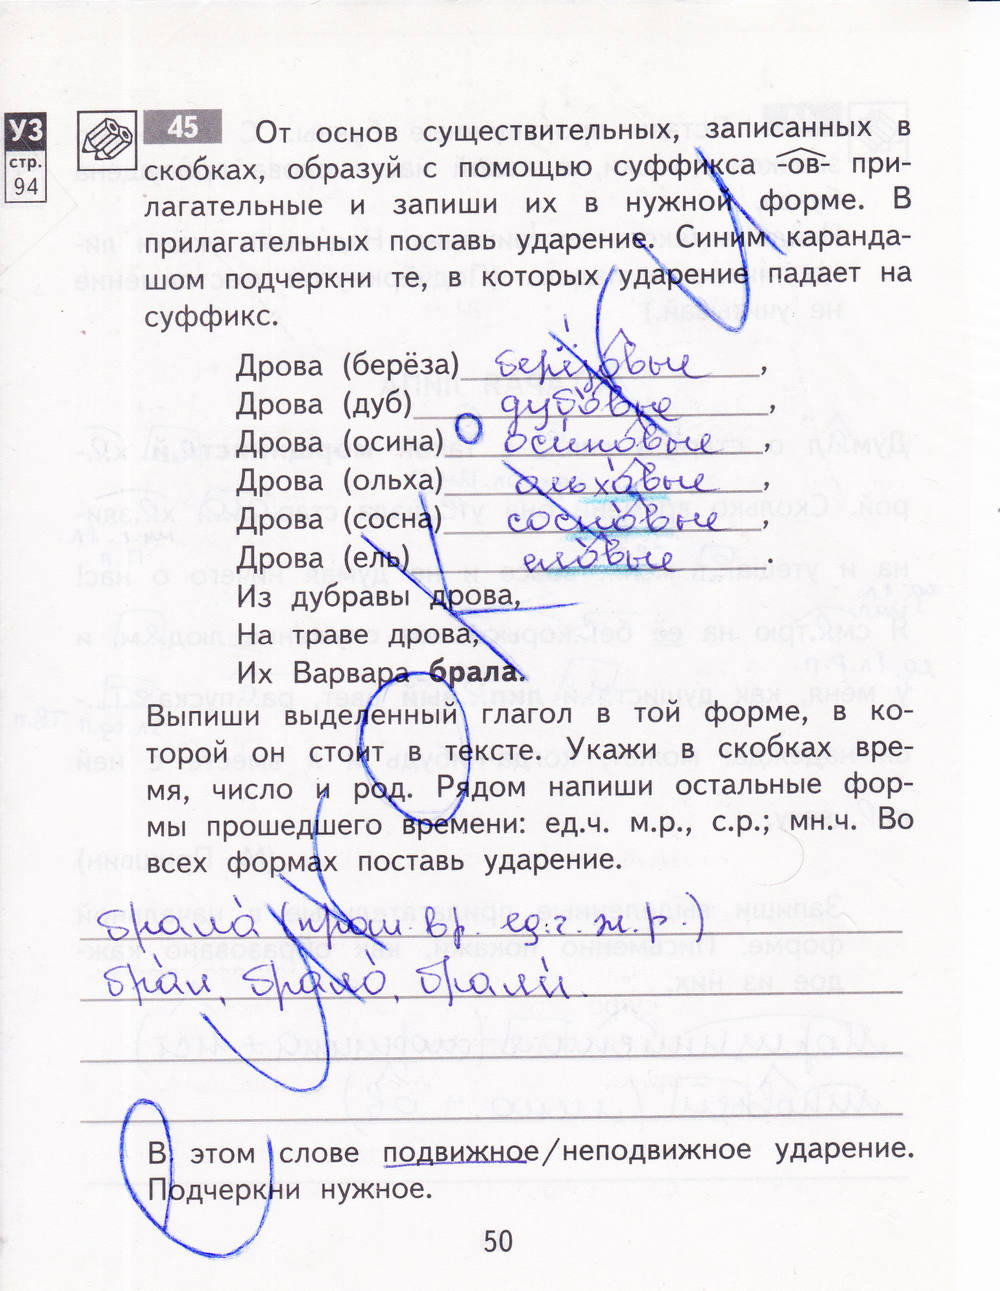 УЗ
стр.
94
45
От основ существительных, записанных в
скобках, образуй с помощью суффикса -ов- при-
лагательные и запиши их в нужной форме. В
прилагательных поставь ударение. Синим каранда-
шом подчеркни те, в которых ударение падает на
суффикс.
Дрова (берёза) берёзовые,
Дрова (дуб) дубовые,
Дрова (осина) осиновые,
Дрова (ольха) ольховые,
Дрова (сосна) сосновые,
Дрова (ель) еловые.
Из дубравы дрова,
На траве дрова,
Их Варвара брала.
Выпиши выделенный глагол в той форме, в ко-
торой он стоит в тексте. Укажи в скобках вре-
мя, число и род. Рядом напиши остальные фор-
мы прошедшего времени: ед.ч. м.р., с.р.; мн.ч. Во
всех формах поставь ударение.
брала́ (прош. вр. ед. ч. ж. р.)
бра́л, бра́ло, бра́ли.
В этом слове подвижное/неподвижное ударение.
Подчеркни нужное.
50